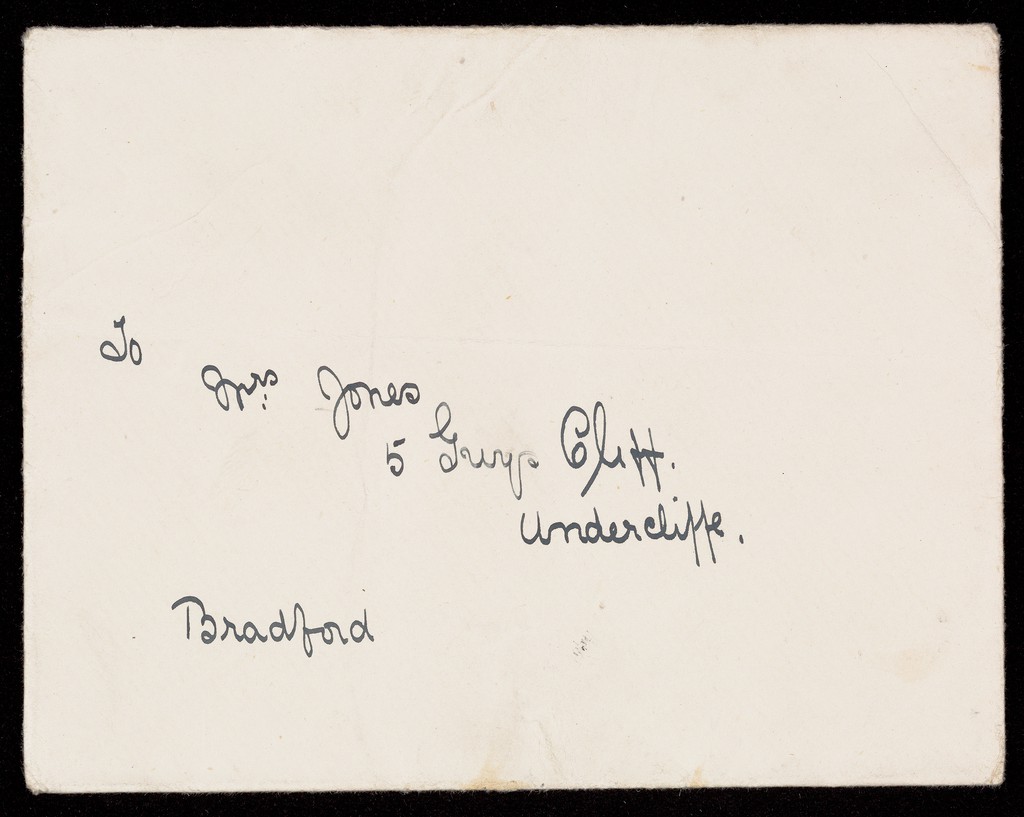 To
Mrs. Jones
5 Guys Cliff.
Undercliffe.
Bradford